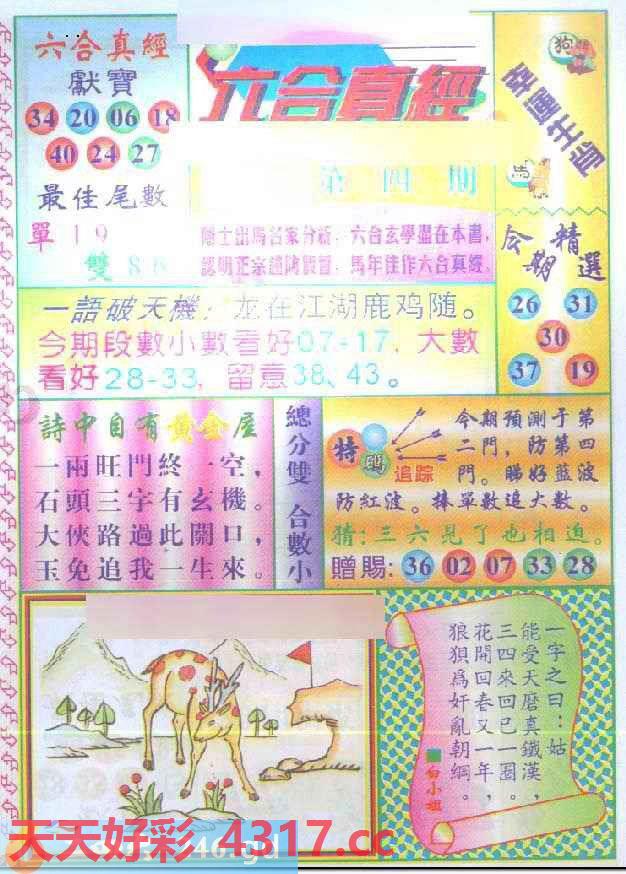 六合真經
獻寶
34 20 06 18
40 24 27
最佳尾數
單 1 9
雙 8 6
六合真經
第四期
狗
馬
隱士出馬名家分新，六合玄學盡在本書，
認明正宗
馬年佳作六合真經。
一語破天機：龙在江湖鹿鸡随。
今期段數小數看好07-17，大數
看好28-33，留意38、43。
今期精選
26 31
30
37 19
詩中自有黃金屋
一兩旺門終一空，
石頭三字有玄機。
大俠路過此關口，
玉兔追我一生來。
總分雙 合數小
特碼追踪
今期預測于第
二門，防第四
門。睇好藍波
防紅波。捧單數追大數。
猜：三六見了也相迫。
贈賜：36 02 07 33 28
一字之曰：姑
能受天磨真鐵漢，
三四來回已一圈。
花開回春又一年，
狼狽為奸亂朝綱。
白小姐
天天好彩 4317.cc
246.gd